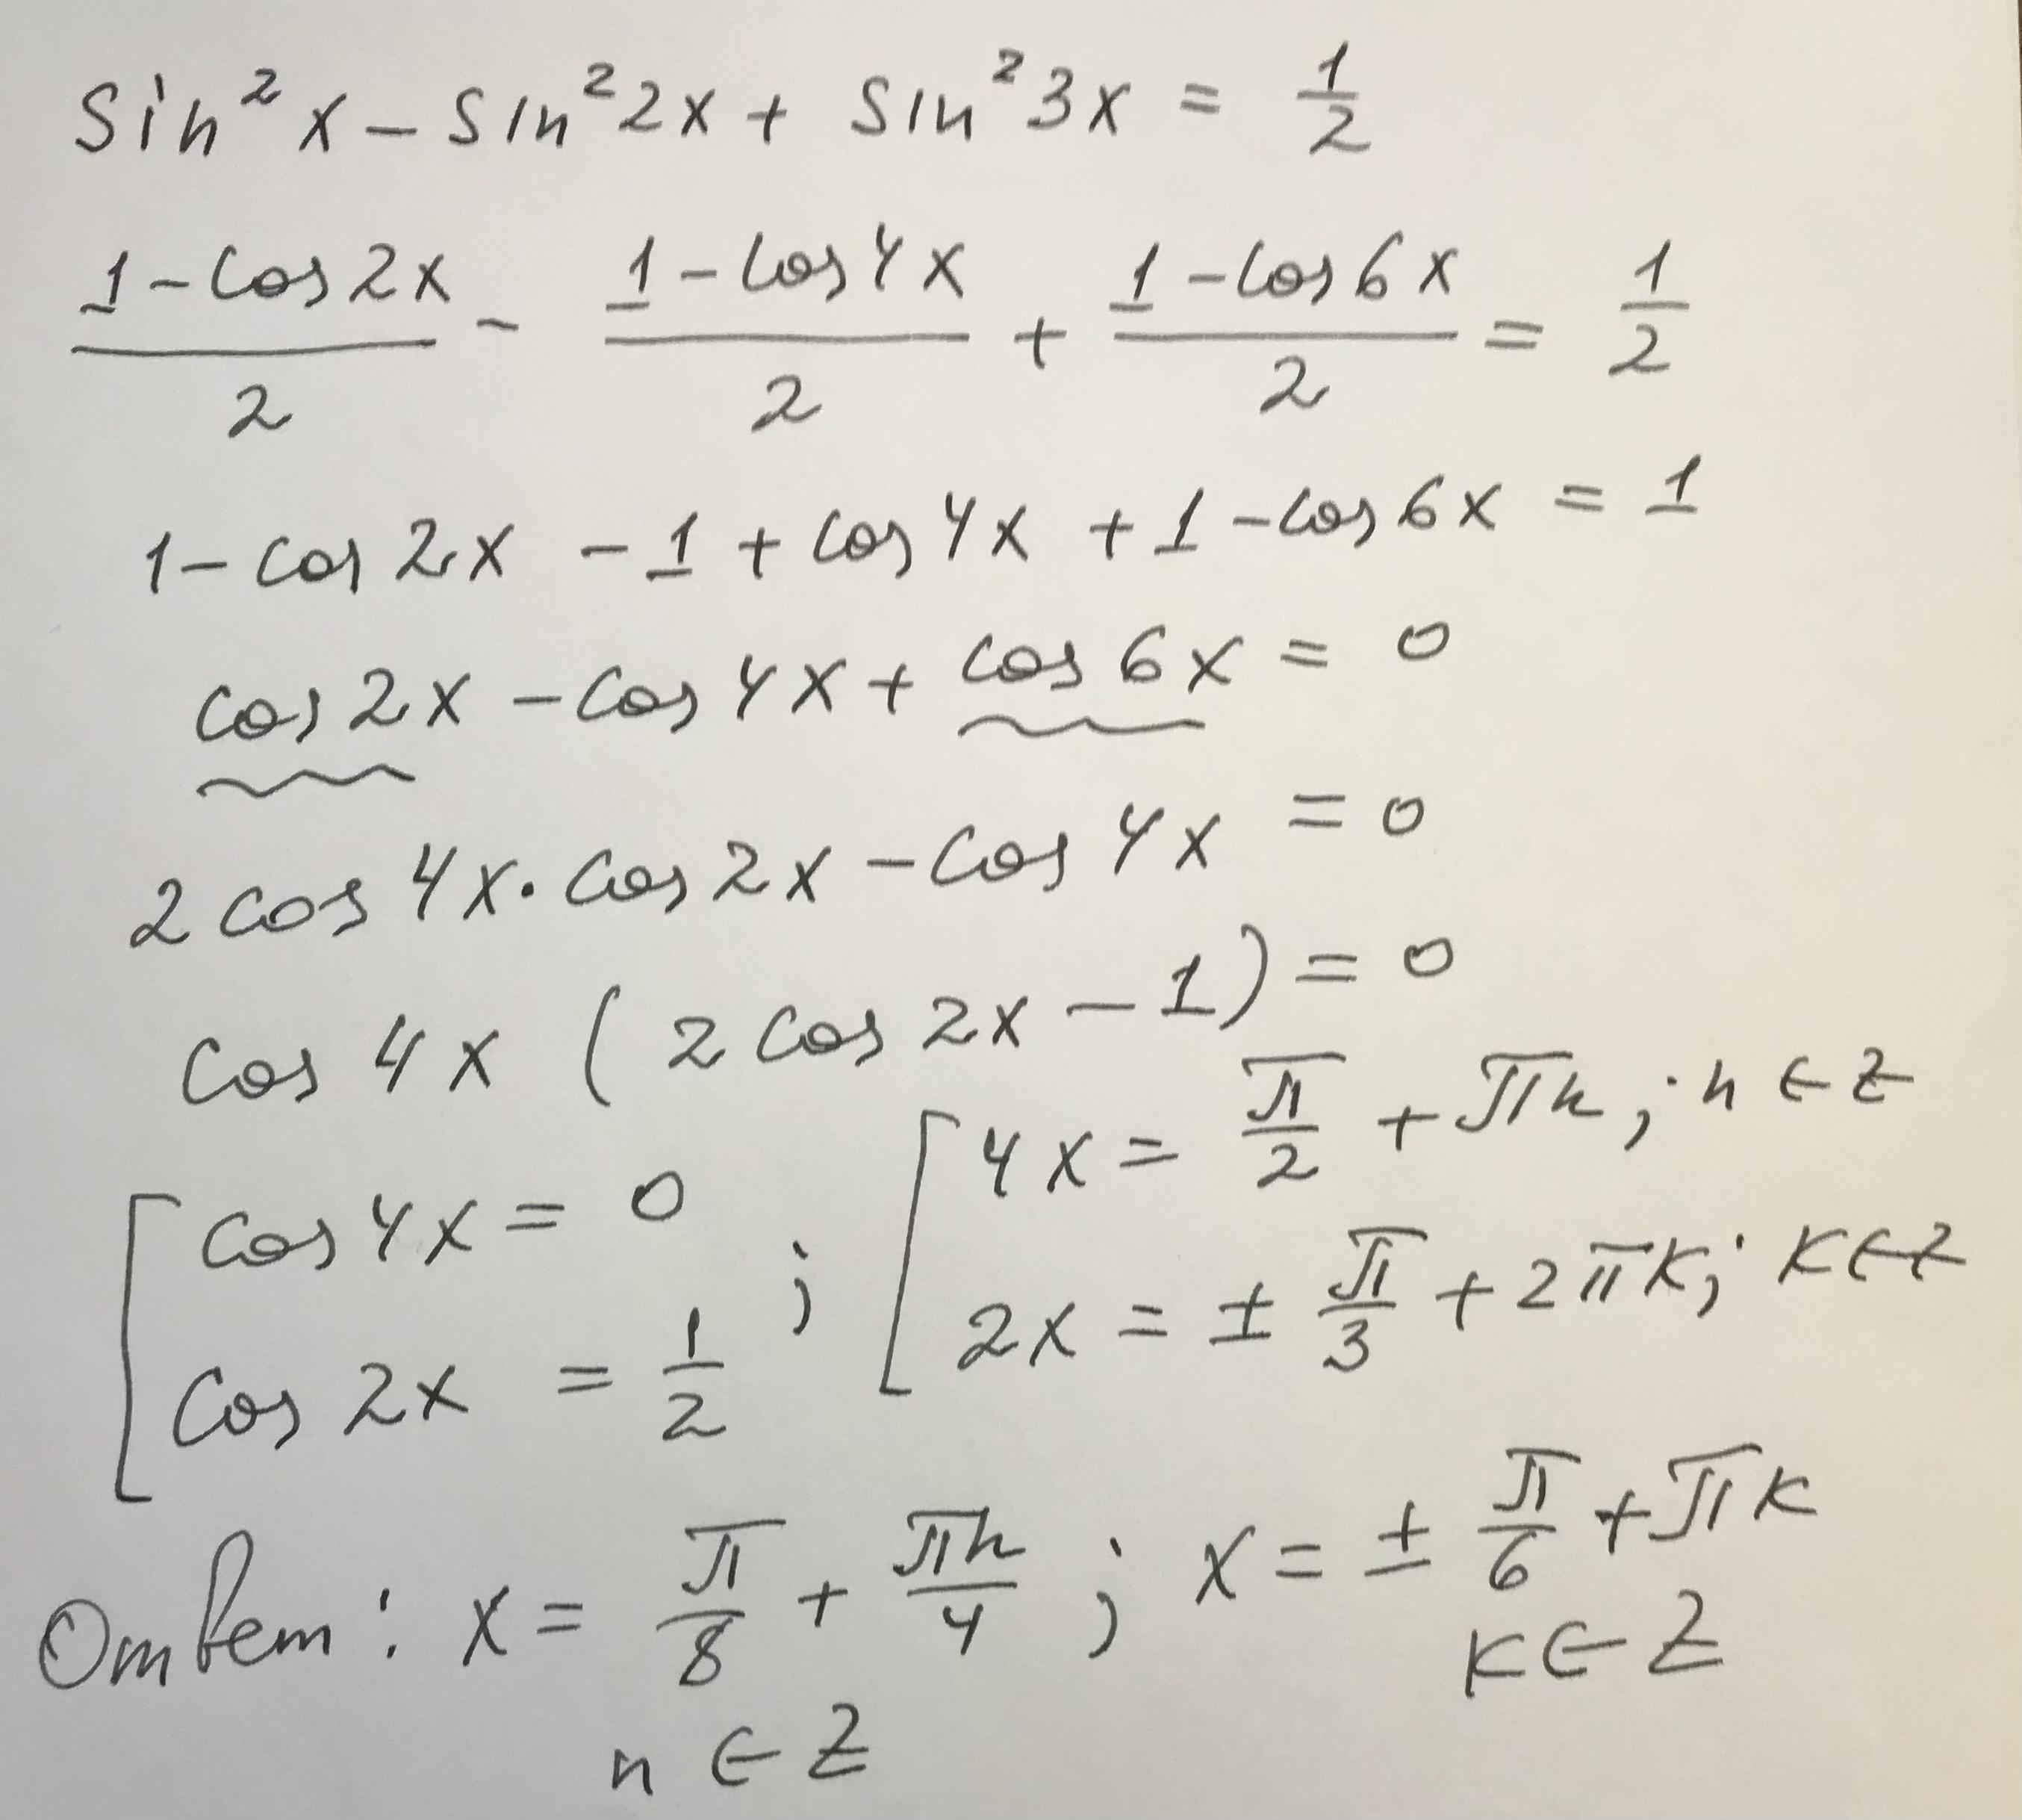 sin²x − sin²2x + sin²3x = 1/2
(1−cos2x)/2 − (1−cos4x)/2 + (1−cos6x)/2 = 1/2
1−cos2x −1 + cos4x +1 −cos6x = 1
cos2x − cos4x + cos6x = 0
2cos4x·cos2x − cos4x = 0
cos4x (2cos2x − 1) = 0
[ cos4x = 0 ; [ 4x = π/2 + πn; n ∈ Z
cos2x = 1/2 2x = ± π/3 + 2πk; k ∈ Z
Ответ: x = π/8 + πn/4 ; x = ± π/6 + πk
n ∈ Z k ∈ Z